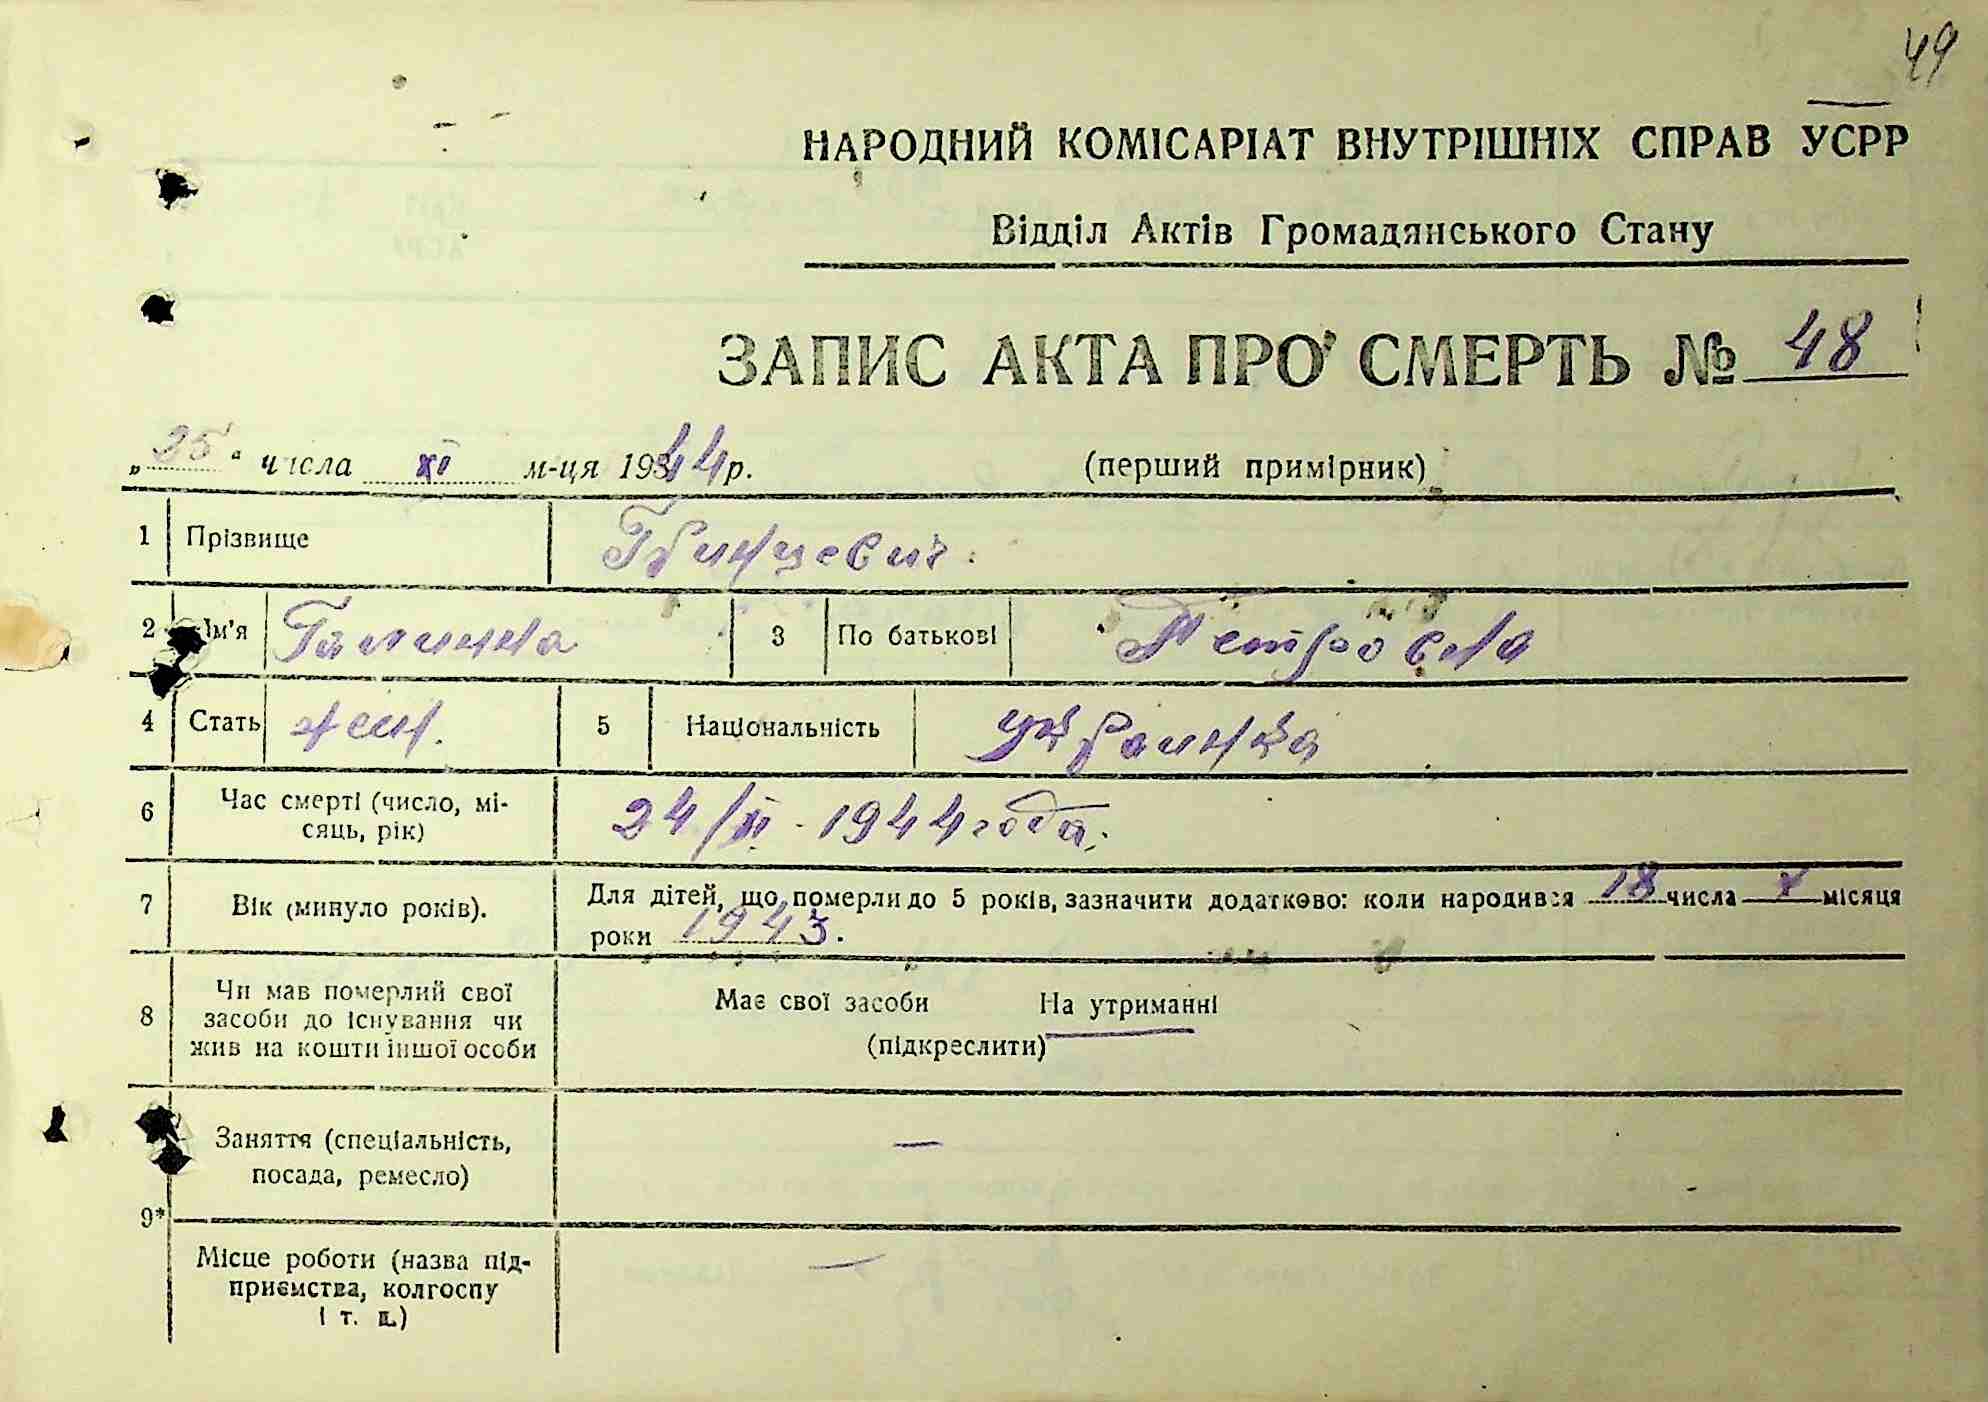 49
НАРОДНИЙ КОМІСАРІАТ ВНУТРІШНІХ СПРАВ УСРР
Відділ Актів Громадянського Стану
ЗАПИС АКТА ПРО СМЕРТЬ № 48
„25“ числа XI м-ця 1944р. (перший примірник)
1 Прізвище Гринцевич.
2 Ім'я Галинна 3 По батькові Петровна
4 Стать жен. 5 Національність украинка
6 Час смерті (число, мі-
сяць, рік) 24/XI - 1944 года.
7 Вік (минуло років). Для дітей, що померли до 5 років, зазначити додатково: коли народився 18 числа X місяця
роки 1943.
8 Чи мав померлий свої
засоби до існування чи
жив на кошти іншої особи
Має свої засоби На утриманні
(підкреслити)
9* Заняття (спеціальність,
посада, ремесло) —
Місце роботи (назва під-
приємства, колгоспу
і т. д.) —